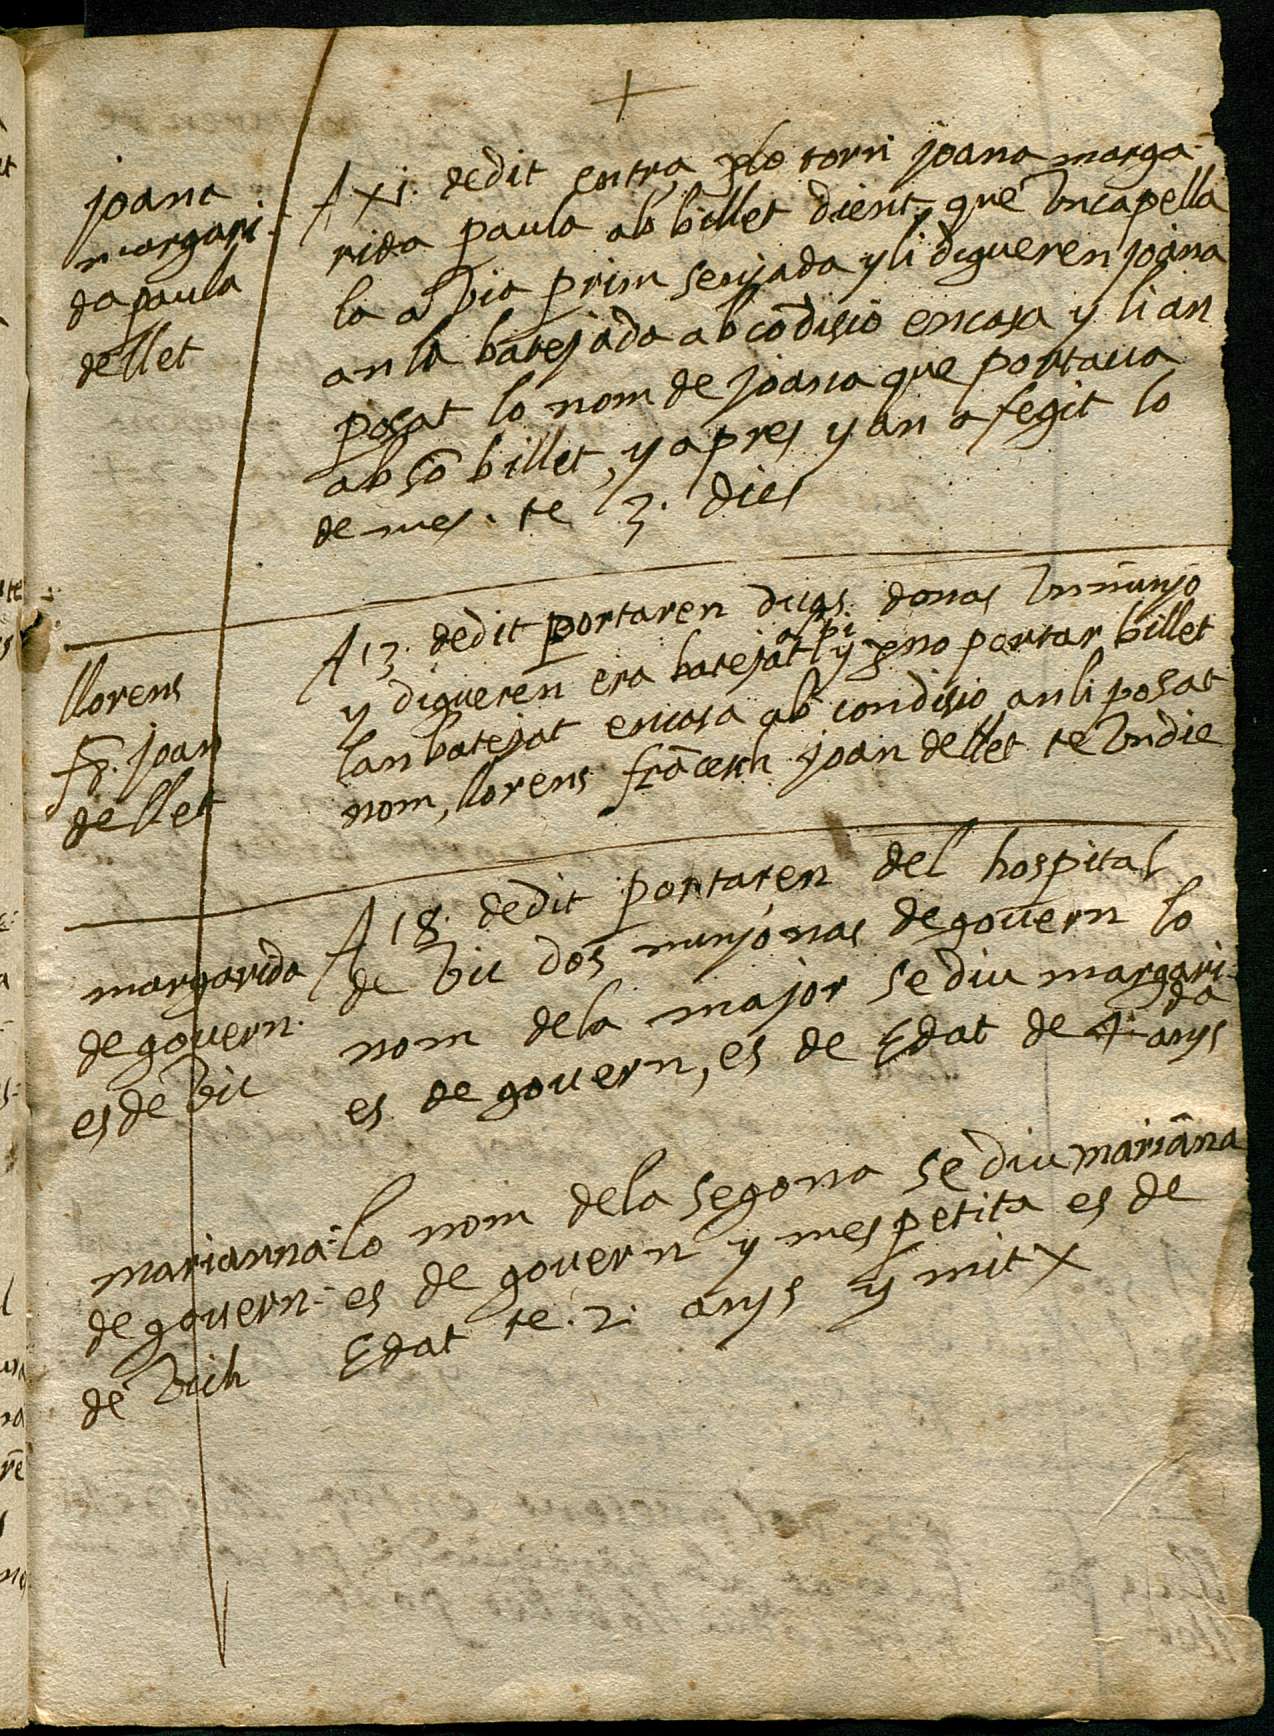 joana
margari-
da paula
de llet
A xi. dedit entra plo torn joana marga-
rida paula ab billet dient que un capella
la a via prim senyada y li digueren joana
an la batejada ab cōdisio en casa y li an
posat lo nom de joana que portaua
ab sō billet, y apres y an afegit lo
de mes. te 3. dies
llorens
fr. joan
de llet
A 13. dedit portaren dues donas un minyo
y digueren era batejat al pi y p no portar billet
lan batejat en casa ab condisio an li posat
nom, llorens frācesch joan de llet te un die
margarida
de gouern.
es de vic
A 18. dedit portaren del hospital
de vic dos minyonas de gouern lo
nom de la major se diu margari-
da
es de gouern, es de Edat de 4 anys
marianna-
de gouern-
de vich
lo nom de la segona se diu mariāna
es de gouern y mes petita es de
Edat te. 2. anys y mit x